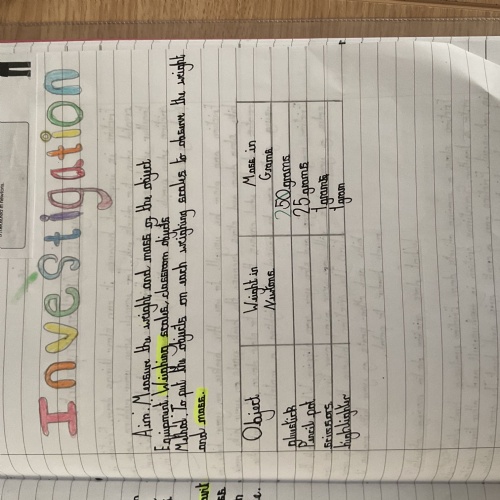 Investigation
Aim: Measure the weight and mass of the object
Equipment: Weighing scales, classroom objects
Method: To put the objects on each weighing scales to observe the weight
and mass.
Object | Weight in Newtons | Mass in Grams
gluestick | | 250 grams
Pencil pot | | 25 grams
scissors | | 1 grams
highlighter | | 1 gram